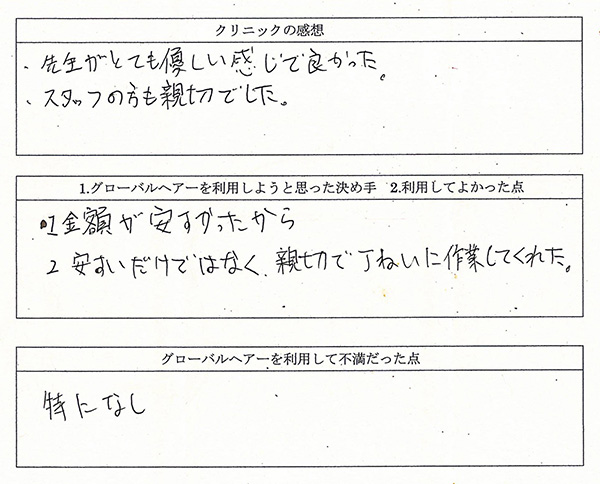 クリニックの感想
・先生がとても優しい感じで良かった。
・スタッフの方も親切でした。
1.グローバルヘアーを利用しようと思った決め手　2.利用してよかった点
1金額が安すかったから
2 安すいだけではなく、親切で丁ねいに作業してくれた。
グローバルヘアーを利用して不満だった点
特になし